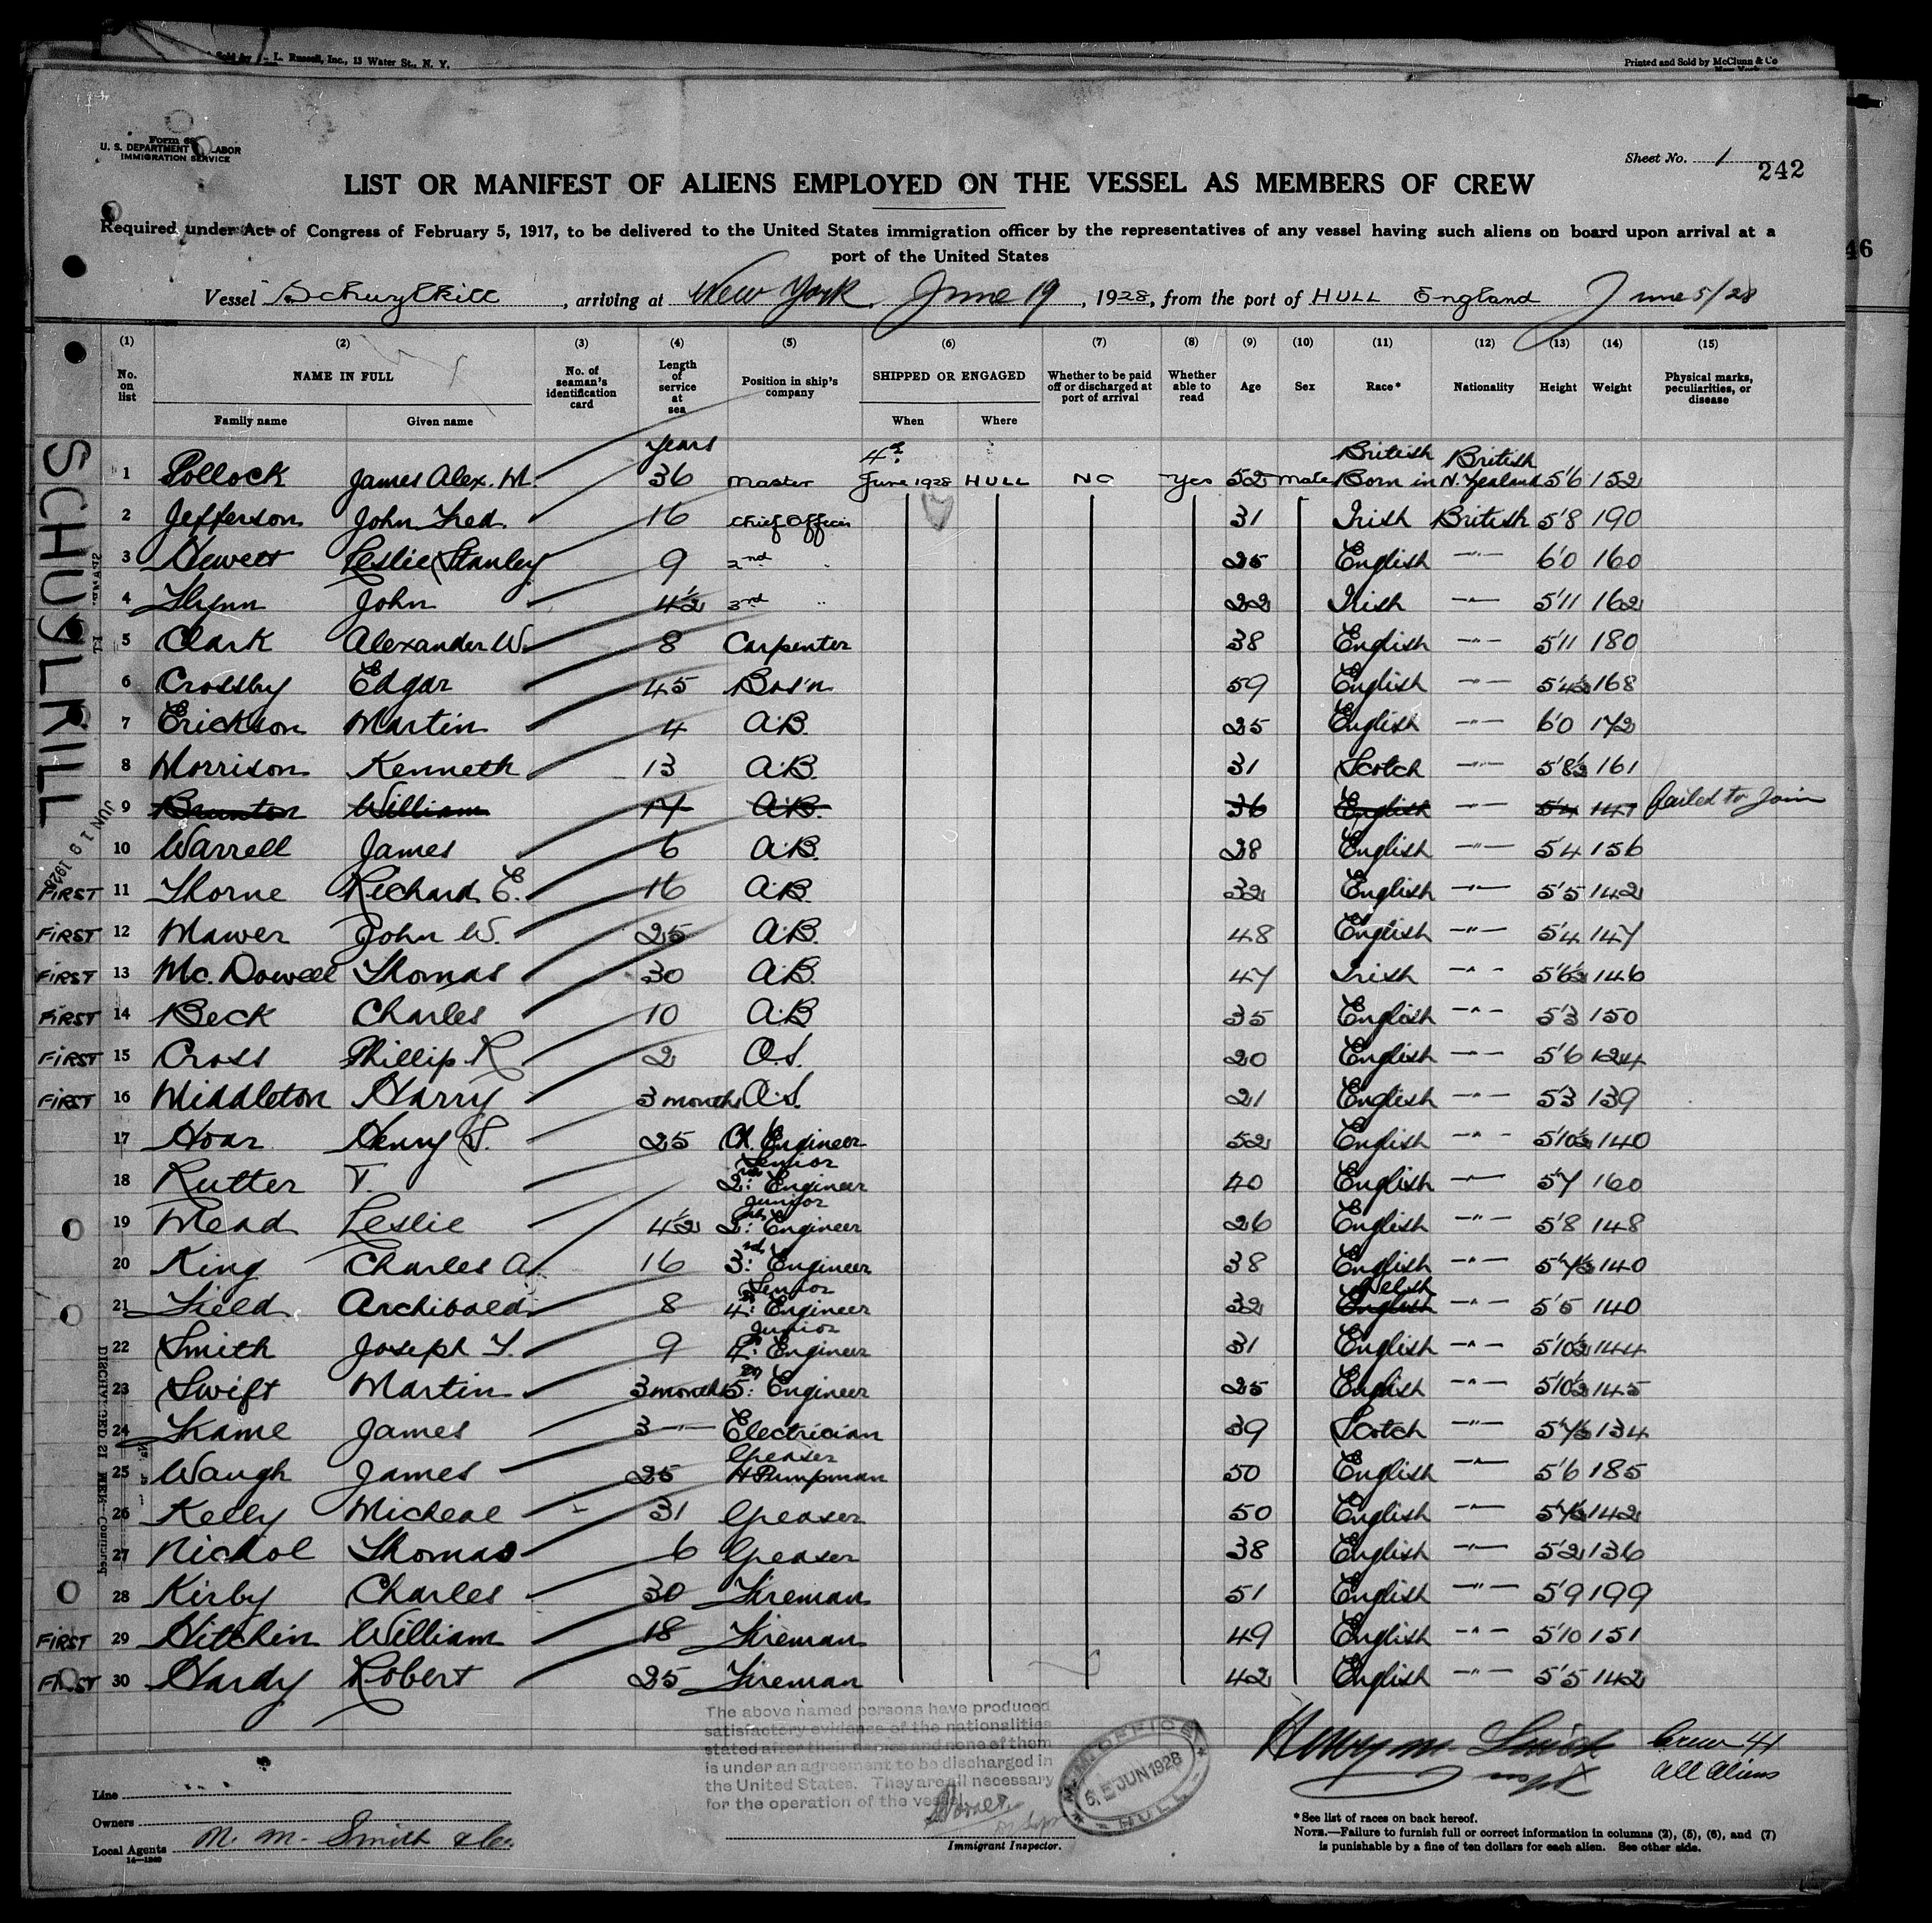 L. Russell, Inc., 13 Water St., N. Y.
Printed and Sold by McClunn & Co
U. S. DEPARTMENT LABOR
IMMIGRATION SERVICE
Sheet No. 1
242
LIST OR MANIFEST OF ALIENS EMPLOYED ON THE VESSEL AS MEMBERS OF CREW
Required under Act of Congress of February 5, 1917, to be delivered to the United States immigration officer by the representatives of any vessel having such aliens on board upon arrival at a
port of the United States
46
Vessel Schuylkill, arriving at New York June 19, 1928, from the port of HULL England June 5/28
(1) (2) (3) (4) (5) (6) (7) (8) (9) (10) (11) (12) (13) (14) (15)
No. on list NAME IN FULL No. of seaman's identification card Length of service at sea Position in ship's company SHIPPED OR ENGAGED Whether to be paid off or discharged at port of arrival Whether able to read Age Sex Race* Nationality Height Weight Physical marks, peculiarities, or disease
Family name Given name When Where
SCHUYLKILL
JUN 19 1928
years 4th British British
1 Pollock James Alex. M. 36 Master June 1928 HULL NO Yes 52 Male Born in N. Zealand 5'6 152
2 Jefferson John Fred. 16 Chief Officer 31 Irish British 5'8 190
3 Hewett Leslie Stanley 9 2nd " 25 English -"- 6'0 160
4 Flynn John 4½ 3rd " 22 Irish -"- 5'11 162
5 Clark Alexander W. 8 Carpenter 38 English -"- 5'11 180
6 Crossby Edgar 45 Bos'n 59 English -"- 5'4½ 168
7 Erickson Martin 4 A.B. 25 English -"- 6'0 172
8 Morrison Kenneth 13 A.B. 31 Scotch -"- 5'8½ 161
9 Brunton William 17 A.B. 36 English -"- 5'4 147 failed to join
10 Warrell James 6 A.B. 28 English -"- 5'4 156
FIRST 11 Thorne Richard E. 16 A.B. 32 English -"- 5'5 142
FIRST 12 Mawer John W. 25 A.B. 48 English -"- 5'4 147
FIRST 13 Mc. Dowell Thomas 30 A.B. 47 Irish -"- 5'6½ 146
FIRST 14 Beck Charles 10 A.B 35 English -"- 5'3 150
FIRST 15 Cross Phillip R 2 O.S. 20 English -"- 5'6 124
FIRST 16 Middleton Harry 3 months O.S. 21 English -"- 5'3 139
17 Hoar Henry S. 25 Ch. Engineer 52 English -"- 5'10½ 140
Senior
18 Rutter T. 2nd Engineer 40 English -"- 5'7 160
Junior
19 Mead Leslie 4½ 2nd Engineer 26 English -"- 5'8 148
20 King Charles A. 16 3rd Engineer 38 English -"- 5'7½ 140
Senior Welsh
21 Field Archibald 8 4th Engineer 32 English -"- 5'5 140
Junior
22 Smith Joseph T. 9 4th Engineer 31 English -"- 5'10½ 144
23 Swift Martin 3 months 5th Engineer 25 English -"- 5'10½ 145
24 Kame James 3 -"- Electrician 39 Scotch -"- 5'7½ 134
Greaser
25 Waugh James 25 & Pumpman 50 English -"- 5'6 185
26 Kelly Micheal 31 Greaser 50 English -"- 5'7½ 142
27 Nichol Thomas 6 Greaser 38 English -"- 5'2 136
28 Kirby Charles 30 Fireman 51 English -"- 5'9 199
FIRST 29 Hitchin William 18 Fireman 49 English -"- 5'10 151
FIRST 30 Hardy Robert 25 Fireman 42 English -"- 5'5 142
The above named persons have produced
satisfactory evidence of the nationalities
stated after their names and none of them
is under an agreement to be discharged in
the United States. They are all necessary
for the operation of the vessel
OFFICE
6 JUN 1928
HULL
Crew 41
All Aliens
Line
Owners
Local Agents M. M. Smith & Co.
Immigrant Inspector.
*See list of races on back hereof.
NOTE.—Failure to furnish full or correct information in columns (2), (5), (6), and (7)
is punishable by a fine of ten dollars for each alien. See other side.